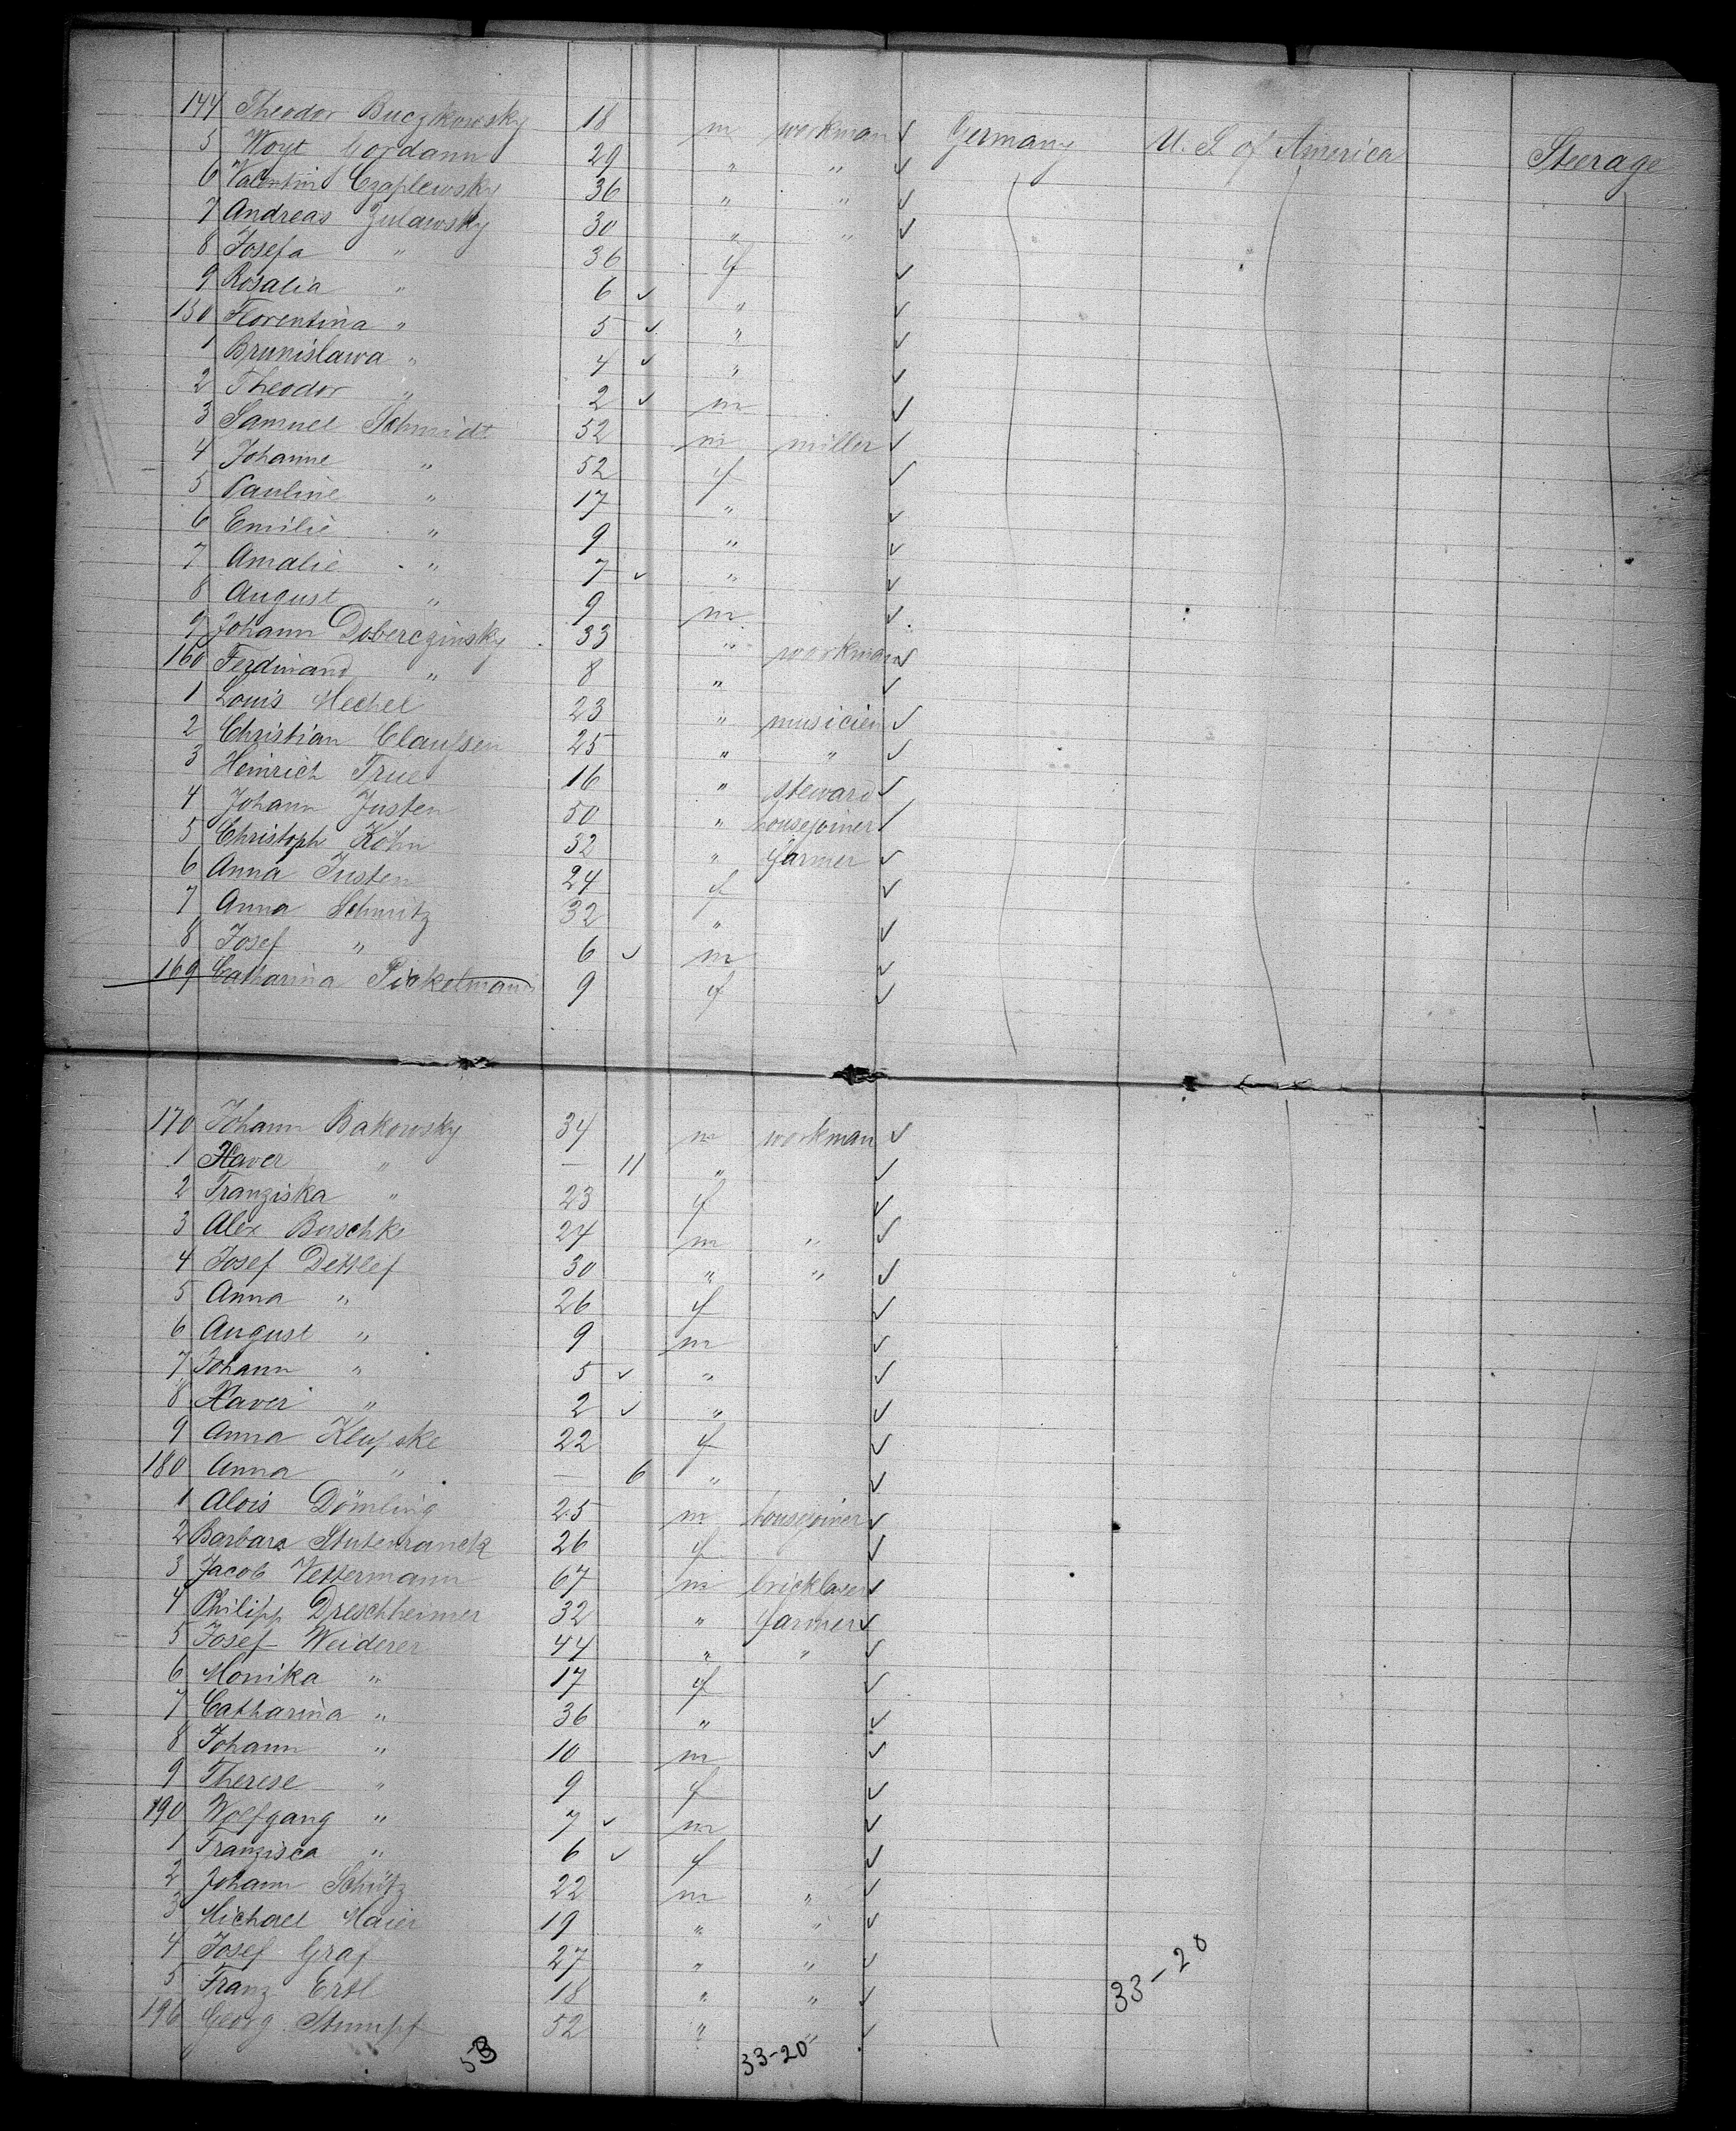 144 Theodor Buczkowsky 18 m workman ✓ Germany U. S. of America Steerage
5 Woyt Gordann 29 " " ✓
6 Valentin Czaplewsky 36 " " ✓
7 Andreas Zulawsky 30 " " ✓
8 Josefa " 36 f ✓
9 Rosalia " 6 ✓ " ✓
150 Florentina " 5 ✓ " ✓
1 Brunislawa " 4 ✓ " ✓
2 Theodor " 2 ✓ m ✓
3 Samuel Schmidt 52 m miller ✓
4 Johanne " 52 f ✓
5 Pauline " 17 " ✓
6 Emilie " 9 " ✓
7 Amalie " 7 ✓ " ✓
8 August " 9 m ✓
9 Johann Doberczinsky 33 " workman ✓
160 Ferdinand " 8 " ✓
1 Louis Mechel 23 " musicien ✓
2 Christian Claussen 25 " " ✓
3 Heinrich True 16 " steward ✓
4 Johann Justen 50 " housejoiner ✓
5 Christoph Köhn 32 " farmer ✓
6 Anna Justen 24 f ✓
7 Anna Schmitz 32 " ✓
8 Josef " 6 ✓ m ✓
169 Catharina 9 f ✓
170 Johann Bakowsky 34 m workman ✓
1 Xaver " — 11 " ✓
2 Franziska " 23 f ✓
3 Alex Buschke 24 m " ✓
4 Josef Dettlef 30 " " ✓
5 Anna " 26 f ✓
6 August " 9 m ✓
7 Johann " 5 ✓ " ✓
8 Xaver " 2 ✓ " ✓
9 Anna Klufske 22 f ✓
180 Anna " — 6 " ✓
1 Alois Dömling 25 m housejoiner ✓
2 Barbara 26 f ✓
3 Jacob Vettermann 67 m bricklayer ✓
4 Philipp Dreschheimer 32 " farmer ✓
5 Josef Weiderer 44 " " ✓
6 Monika " 17 f ✓
7 Catharina " 36 " ✓
8 Johann " 10 m ✓
9 Therese " 9 f ✓
190 Wolfgang " 7 ✓ m ✓
1 Franzisca " 6 ✓ f ✓
2 Johann Schütz 22 m " ✓
3 Michael Maier 19 " " ✓
4 Josef Graf 27 " " ✓
5 Franz Ertl 18 " " ✓
196 Georg Stumpf 52 " " ✓
33-20
53 33-20